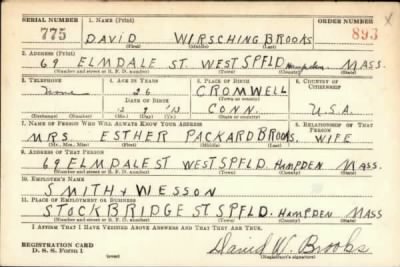 SERIAL NUMBER 1. NAME (Print) ORDER NUMBER
775 DAVID WIRSCHING BROOKS 893
(First) (Middle) (Last)
2. ADDRESS (Print)
69 ELMDALE ST. WEST SPFLD Hampden MASS.
(Number and street or R. F. D. number) (Town) (County) (State)
3. TELEPHONE 4. AGE IN YEARS 5. PLACE OF BIRTH 6. COUNTRY OF CITIZENSHIP
None 26 CROMWELL
DATE OF BIRTH (Town or county)
CONN. U.S.A.
(Exchange) (Number) (Mo.) (Day) (Yr.) (State or country)
7. NAME OF PERSON WHO WILL ALWAYS KNOW YOUR ADDRESS 8. RELATIONSHIP OF THAT PERSON
MRS. ESTHER PACKARD BROOKS. WIFE
(Mr., Mrs., Miss) (First) (Middle) (Last)
9. ADDRESS OF THAT PERSON
69 ELMDALE ST WEST SPFLD. HAMPDEN MASS.
(Number and street or R. F. D. number) (Town) (County) (State)
10. EMPLOYER'S NAME
SMITH + WESSON
11. PLACE OF EMPLOYMENT OR BUSINESS
STOCKBRIDGE ST SPFLD. HAMPDEN MASS
(Number and street or R. F. D. number) (Town) (County) (State)
I AFFIRM THAT I HAVE VERIFIED ABOVE ANSWERS AND THAT THEY ARE TRUE.
REGISTRATION CARD
D. S. S. Form 1 David W. Brooks
(Registrant's signature)